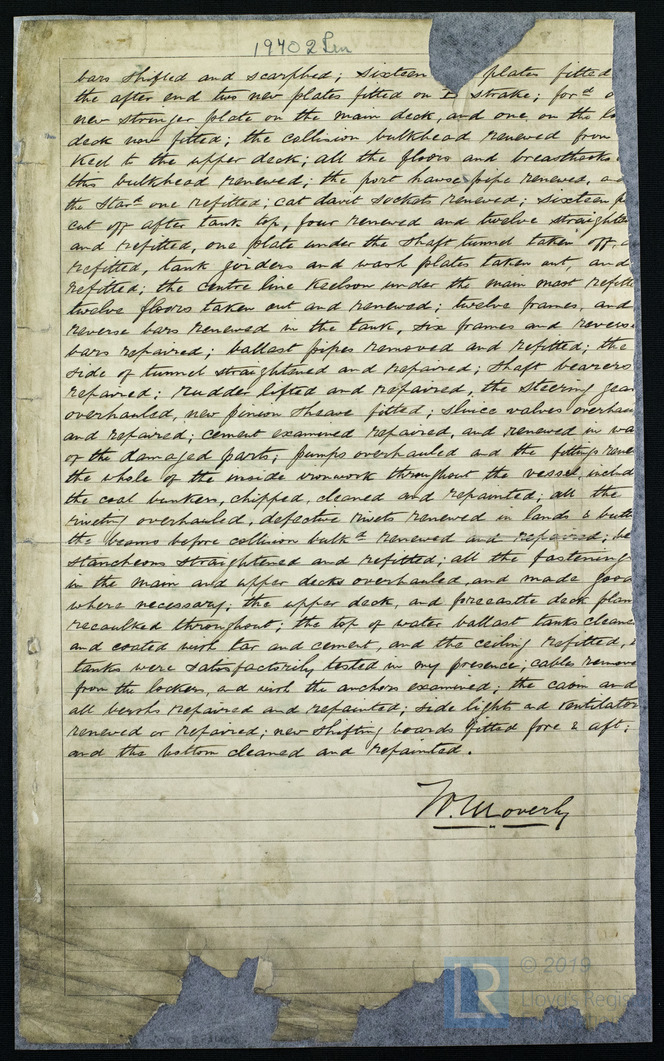 19402 Lon
bars shifted and scarphed; sixteen plates fitted
the after end two new plates fitted on E strake; ford
new stringer plate on the main deck, and one on the
deck now fitted; the collision bulkhead renewed from
keel to the upper deck; all the floors and breasthooks
this bulkhead renewed; the port hawse pipe renewed, and
the Stard one refitted; cat davit sockets renewed; sixteen
cut off after tank top, four renewed and twelve straighten
and refitted, one plate under the shaft tunnel taken off,
refitted, tank girders and wash plates taken out, and
refitted; the centre line keelson under the main mast refitte
twelve floors taken out and renewed; twelve frames, and
reverse bars renewed in the tank, six frames and reverse
bars repaired; ballast pipes removed and refitted; the
side of tunnel straightened and repaired; shaft bearers
repaired; rudder lifted and repaired, the steering gear
overhauled, new pinion sheave fitted; sluice valves overhau
and repaired; cement examined repaired, and renewed in wa
of the damaged parts; pumps overhauled and the fittings rene
the whole of the inside ironwork throughout the vessel, includ
the coal bunkers, chipped, cleaned and repainted; all the
riveting overhauled, defective rivets renewed in lands & butts
the beams before collision bulkd renewed and repaired;
stancheons straightened and refitted; all the fastening
in the main and upper decks overhauled, and made good
where necessary; the upper deck, and forecastle deck plan
recaulked throughout; the top of water ballast tanks cleane
and coated with tar and cement, and the ceiling refitted,
tanks were satisfactorily tested in my presence; cables remove
from the lockers, and with the anchors examined; the cabin and
all berths repaired and repainted; side light and ventilator
renewed or repaired; new shifting boards fitted fore & aft;
and the bottom cleaned and repainted.
W. Moverly
© 2019
LR
Lloyd's Regis